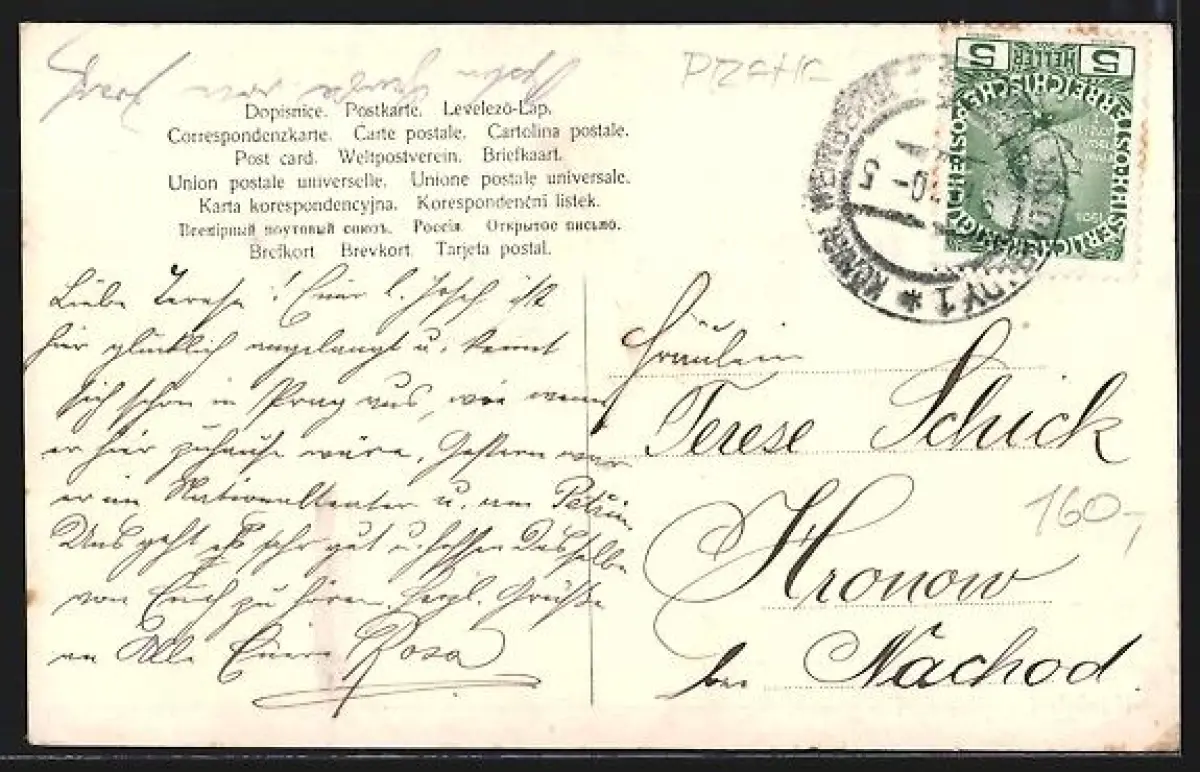 Dopisnice. Postkarte. Levelező-Lap.
Correspondenzkarte. Carte postale. Cartolina postale.
Post card. Weltpostverein. Briefkaart.
Union postale universelle. Unione postale universale.
Karta korespondencyjna. Korespondenční listek.
Всемірный почтовый союзъ. Россія. Открытое письмо.
Brefkort Brevkort. Tarjeta postal.
Liebe Terese! Euer l. Josef ist
hier glücklich angelangt u. kennt
sich schon in Prag aus, wie wenn
er hier zuhause wäre. Gestern war
er im Nationalteater u. am Petřin.
Uns geht es sehr gut u. hoffen dasselbe
von Euch zu hören. Herzl. Grüße
an Alle Euere Rosa
Fräulein
Terese Schick
Hronow
bei Náchod.
160,-
5 HELLER 5
1908